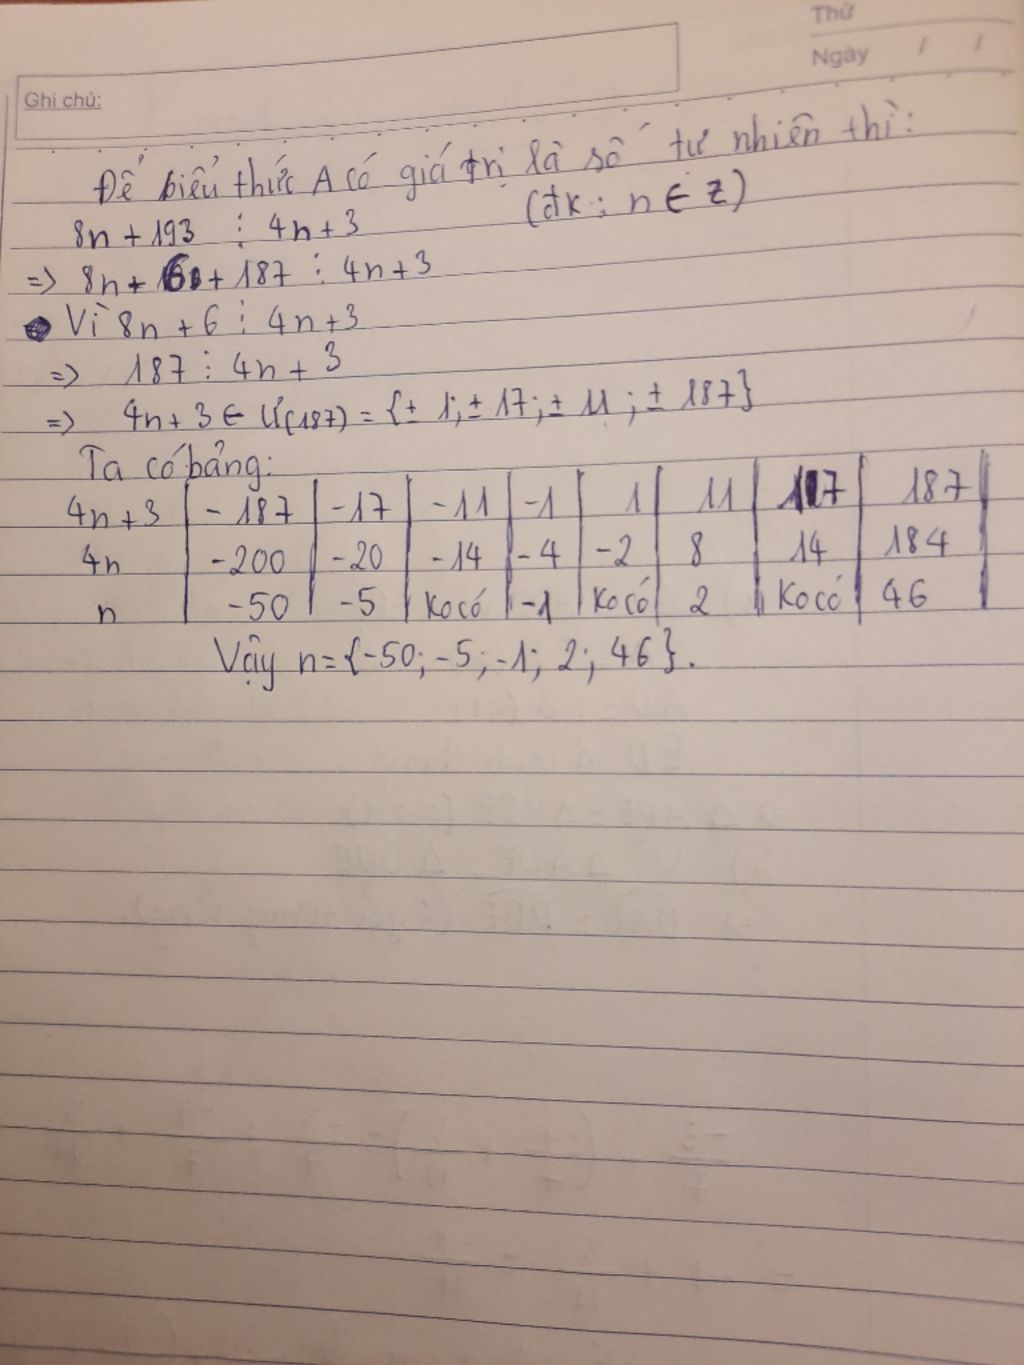 Thứ
Ngày / /
Ghi chú:
Để biểu thức A có giá trị là số tự nhiên thì:
8n + 193 ⋮ 4n + 3 (đk: n ∈ Z)
=> 8n + 6 + 187 ⋮ 4n + 3
Vì 8n + 6 ⋮ 4n + 3
=> 187 ⋮ 4n + 3
=> 4n + 3 ∈ Ư(187) = {± 1; ± 17; ± 11; ± 187}
Ta có bảng:
4n + 3 | - 187 | - 17 | - 11 | - 1 | 1 | 11 | 17 | 187
4n | -200 | -20 | -14 | -4 | -2 | 8 | 14 | 184
n | -50 | -5 | Ko có | -1 | Ko có | 2 | Ko có | 46
Vậy n = {-50; -5; -1; 2; 46}.